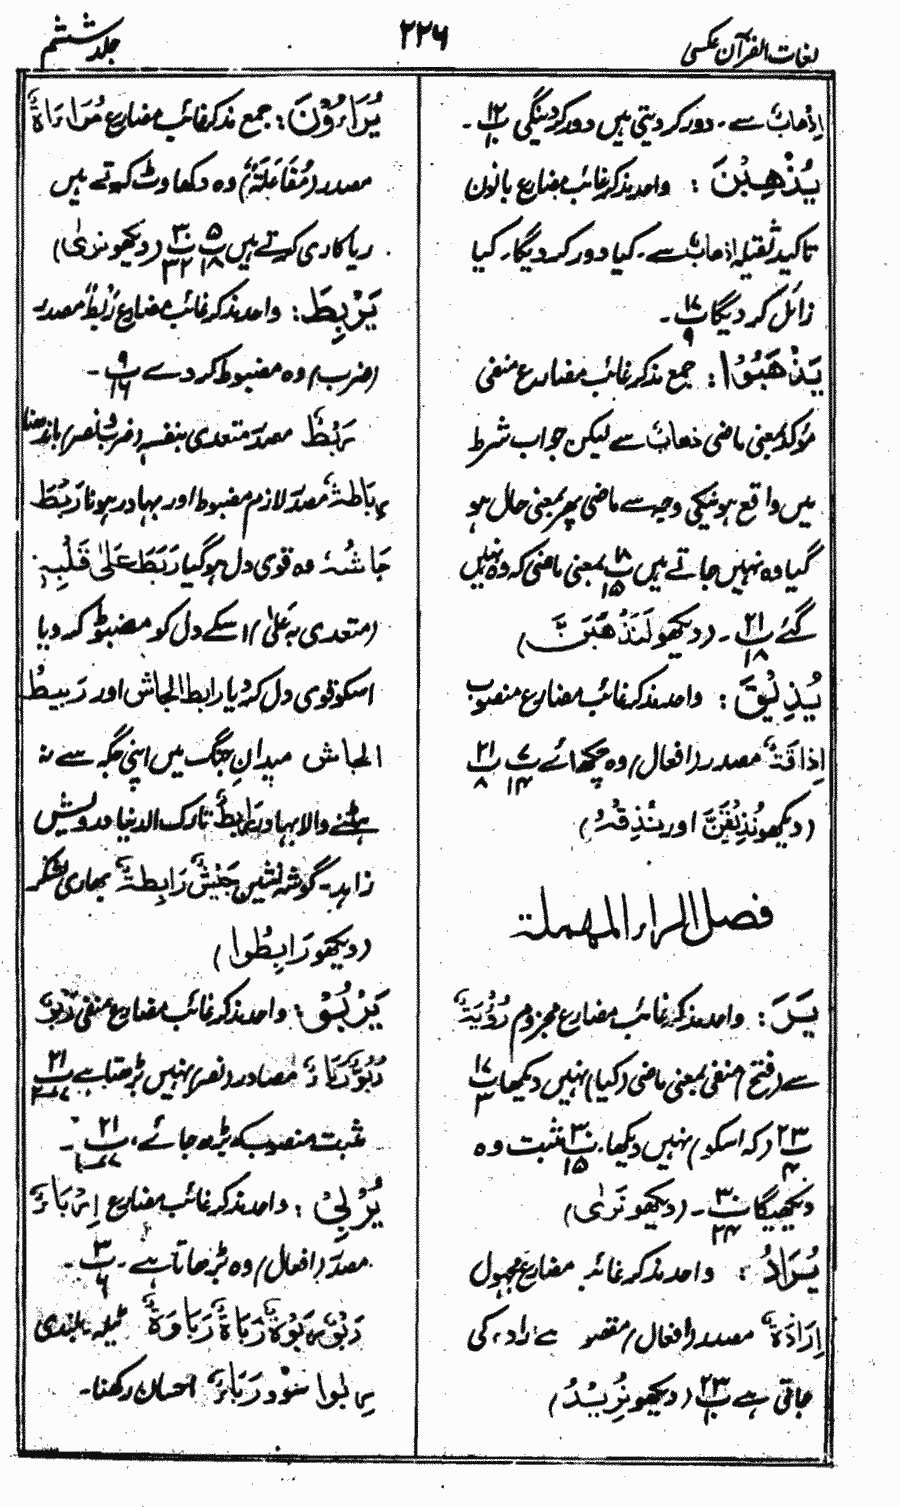 لغات القرآن عکسی
۲۲۶
جلد ششم
اِذْھَابٌ سے۔ دور کر دیتی ہیں دور کردینگی پ۱۲
یُذْھِبَنَّ : واحد مذکر غائب مضارع بانون
تاکید ثقیلہ اذھاب سے۔ کیا دور کر دیگا۔ کیا
زائل کر دیگا پ۱۷ ۹
یَذْھَبُوْا : جمع مذکر غائب مضارع منفی
مؤکد بمعنی ماضی ذھاب سے لیکن جواب شرط
میں واقع ہونیکی وجہ سے ماضی پھر بمعنی حال ہو
گیا وہ نہیں جاتے ہیں پ۱۸ ۱۵ بمعنی ماضی کہ وہ نہیں
گئے پ۲۱ ۱۸ ۔ (دیکھو لَنَذْھَبَنَّ)
یُذِیْقَ : واحد مذکر غائب مضارع منصوب
اِذَاقَۃٌ مصدر (افعال) وہ چکھائے پ۷ ۱۴ پ۲۱ ۸
(دیکھو نُذِیْقَنَّ اور نُذِقْہُ)
فصل الراء المہملۃ
یَرَ : واحد مذکر غائب مضارع مجزوم رُؤْیَۃٌ
سے (فتح) منفی بمعنی ماضی (کیا) نہیں دیکھا پ۱۷ ۳
پ۲۳ ۴ (کہ اسکو) نہیں دیکھا، پ۳۰ ۱۵ مثبت وہ
دیکھیگا پ۳۰ ۲۴ ۔ (دیکھو نَرٰی)
یُرَادُ : واحد مذکر غائب مضارع مجہول
اِرَادَۃٌ مصدر (افعال) مقصود ہے، مراد لی
جاتی ہے پ۲۳ ۱۰ (دیکھو نُرِیْدُ)
یُرَاءُوْنَ : جمع مذکر غائب مضارع مُرَاءَاۃٌ
مصدر (مُفَاعَلَۃٌ) وہ دکھاوٹ کرتے ہیں
ریاکاری کرتے ہیں پ۵ ۱۸ پ۳۰ ۳۲ (دیکھو نرٰی)
یَرْبِطَ : واحد مذکر غائب مضارع رَبْطٌ مصدر
(ضرب) وہ مضبوط کر دے پ۹ ۱۶ ۔
رَبْطٌ مصدر متعدی بنفسہ (ضرب و نصر) باندھنا
رِبَاطَۃٌ مصدر لازم مضبوط اور بہادر ہونا رَبُطَ
جَاشُہٗ وہ قوی دل ہو گیا رَبَطَ عَلٰی قَلْبِہٖ
(متعدی بہ عَلٰی) اسکے دل کو مضبوط کر دیا
اسکو قوی دل کردیا رابط الجاش اور ربیطُ
الجاش میدانِ جنگ میں اپنی جگہ سے نہ
ہٹنے والا بہادر رَابِطٌ تارک الدنیا درویش
زاہد۔ گوشہ نشین جَیْشٌ رَابِطَۃٌ بھاری لشکر
(دیکھو رَابِطُوا)
یَرْبُوْ : واحد مذکر غائب مضارع منفی رَبْوٌ
رُبُوٌّ رَبَاءٌ مصادر (نصر) نہیں بڑھتا ہے پ۲۱ ۷
مثبت منصوب کہ بڑھ جائے، پ۲۱ ۷ ۔
یُرْبِیْ : واحد مذکر غائب مضارع اِرْبَاءٌ
مصدر (افعال) وہ بڑھاتا ہے۔ پ۳ ۶ ۔
رَبْوٌ رَبْوَۃٌ رَبَاۃٌ رَبَاوَۃٌ ٹیلہ بلندی
رِبٰوا سُود رَبَاءٌ احسان رکھنا۔